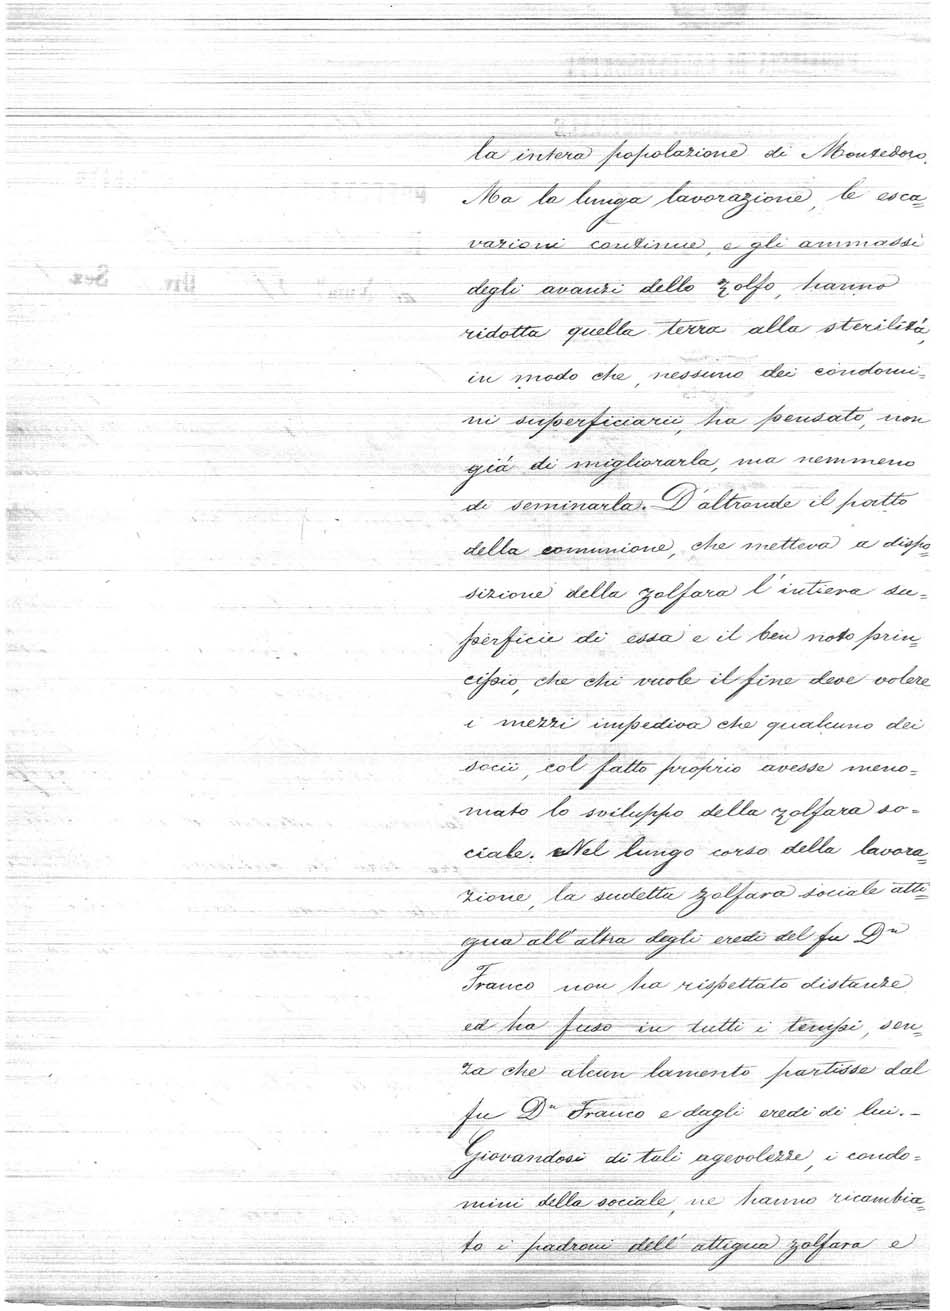 la intera popolazione di Montedoro.
Ma la lunga lavorazione, le esca=
vazioni continue, e gli ammassi
degli avanzi dello zolfo, hanno
ridotta quella terra alla sterilità,
in modo che, nessuno dei condomi=
ni superficiarii, ha pensato, non
già di migliorarla, ma nemmeno
di seminarla. D'altronde il patto
della comunione, che metteva a dispo=
sizione della zolfara l'intiera su=
perficie di essa e il ben noto prin=
cipio, che chi vuole il fine deve volere
i mezzi impediva che qualcuno dei
socii, col fatto proprio avesse meno=
mato lo sviluppo della zolfara so=
ciale. Nel lungo corso della lavora=
zione, la sudetta zolfara sociale atti=
gua all'altra degli eredi del fu Dn
Franco non ha rispettato distanze
ed ha fuso in tutti i tempi, sen=
za che alcun lamento partisse dal
fu Dn Franco e dagli eredi di lui. -
Giovandosi di tali agevolezze, i condo=
mini della sociale, ne hanno ricambia=
to i padroni dell'attigua zolfara e